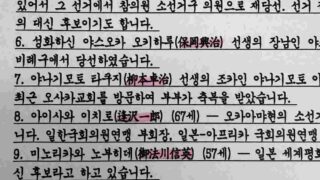 있어서 그 선거에서 참의원 소선거구 의원으로 재당선. 선거
의 대신 후보이기도 합니다.
6. 성화하신 야스오카 오키하루(保岡興治) 선생의 장남인 야
비례구에서 당선하였습니다.
7. 야나기모토 타쿠지(柳本卓治) 선생의 조카인 야나기모토
최근 오사카교회를 방문하여 부부가 축복을 받았습니다.
8. 아이사와 이치로(逢沢一郎) (67세) — 오카야마현의 소선거
니다. 일한국회의원연맹 부회장, 일본-아프리카 국회의원연맹
9. 미노리카와 노부히데(御法川信英) (57세) — 일본 세계평화
신 후보라고 하고 있습니다.